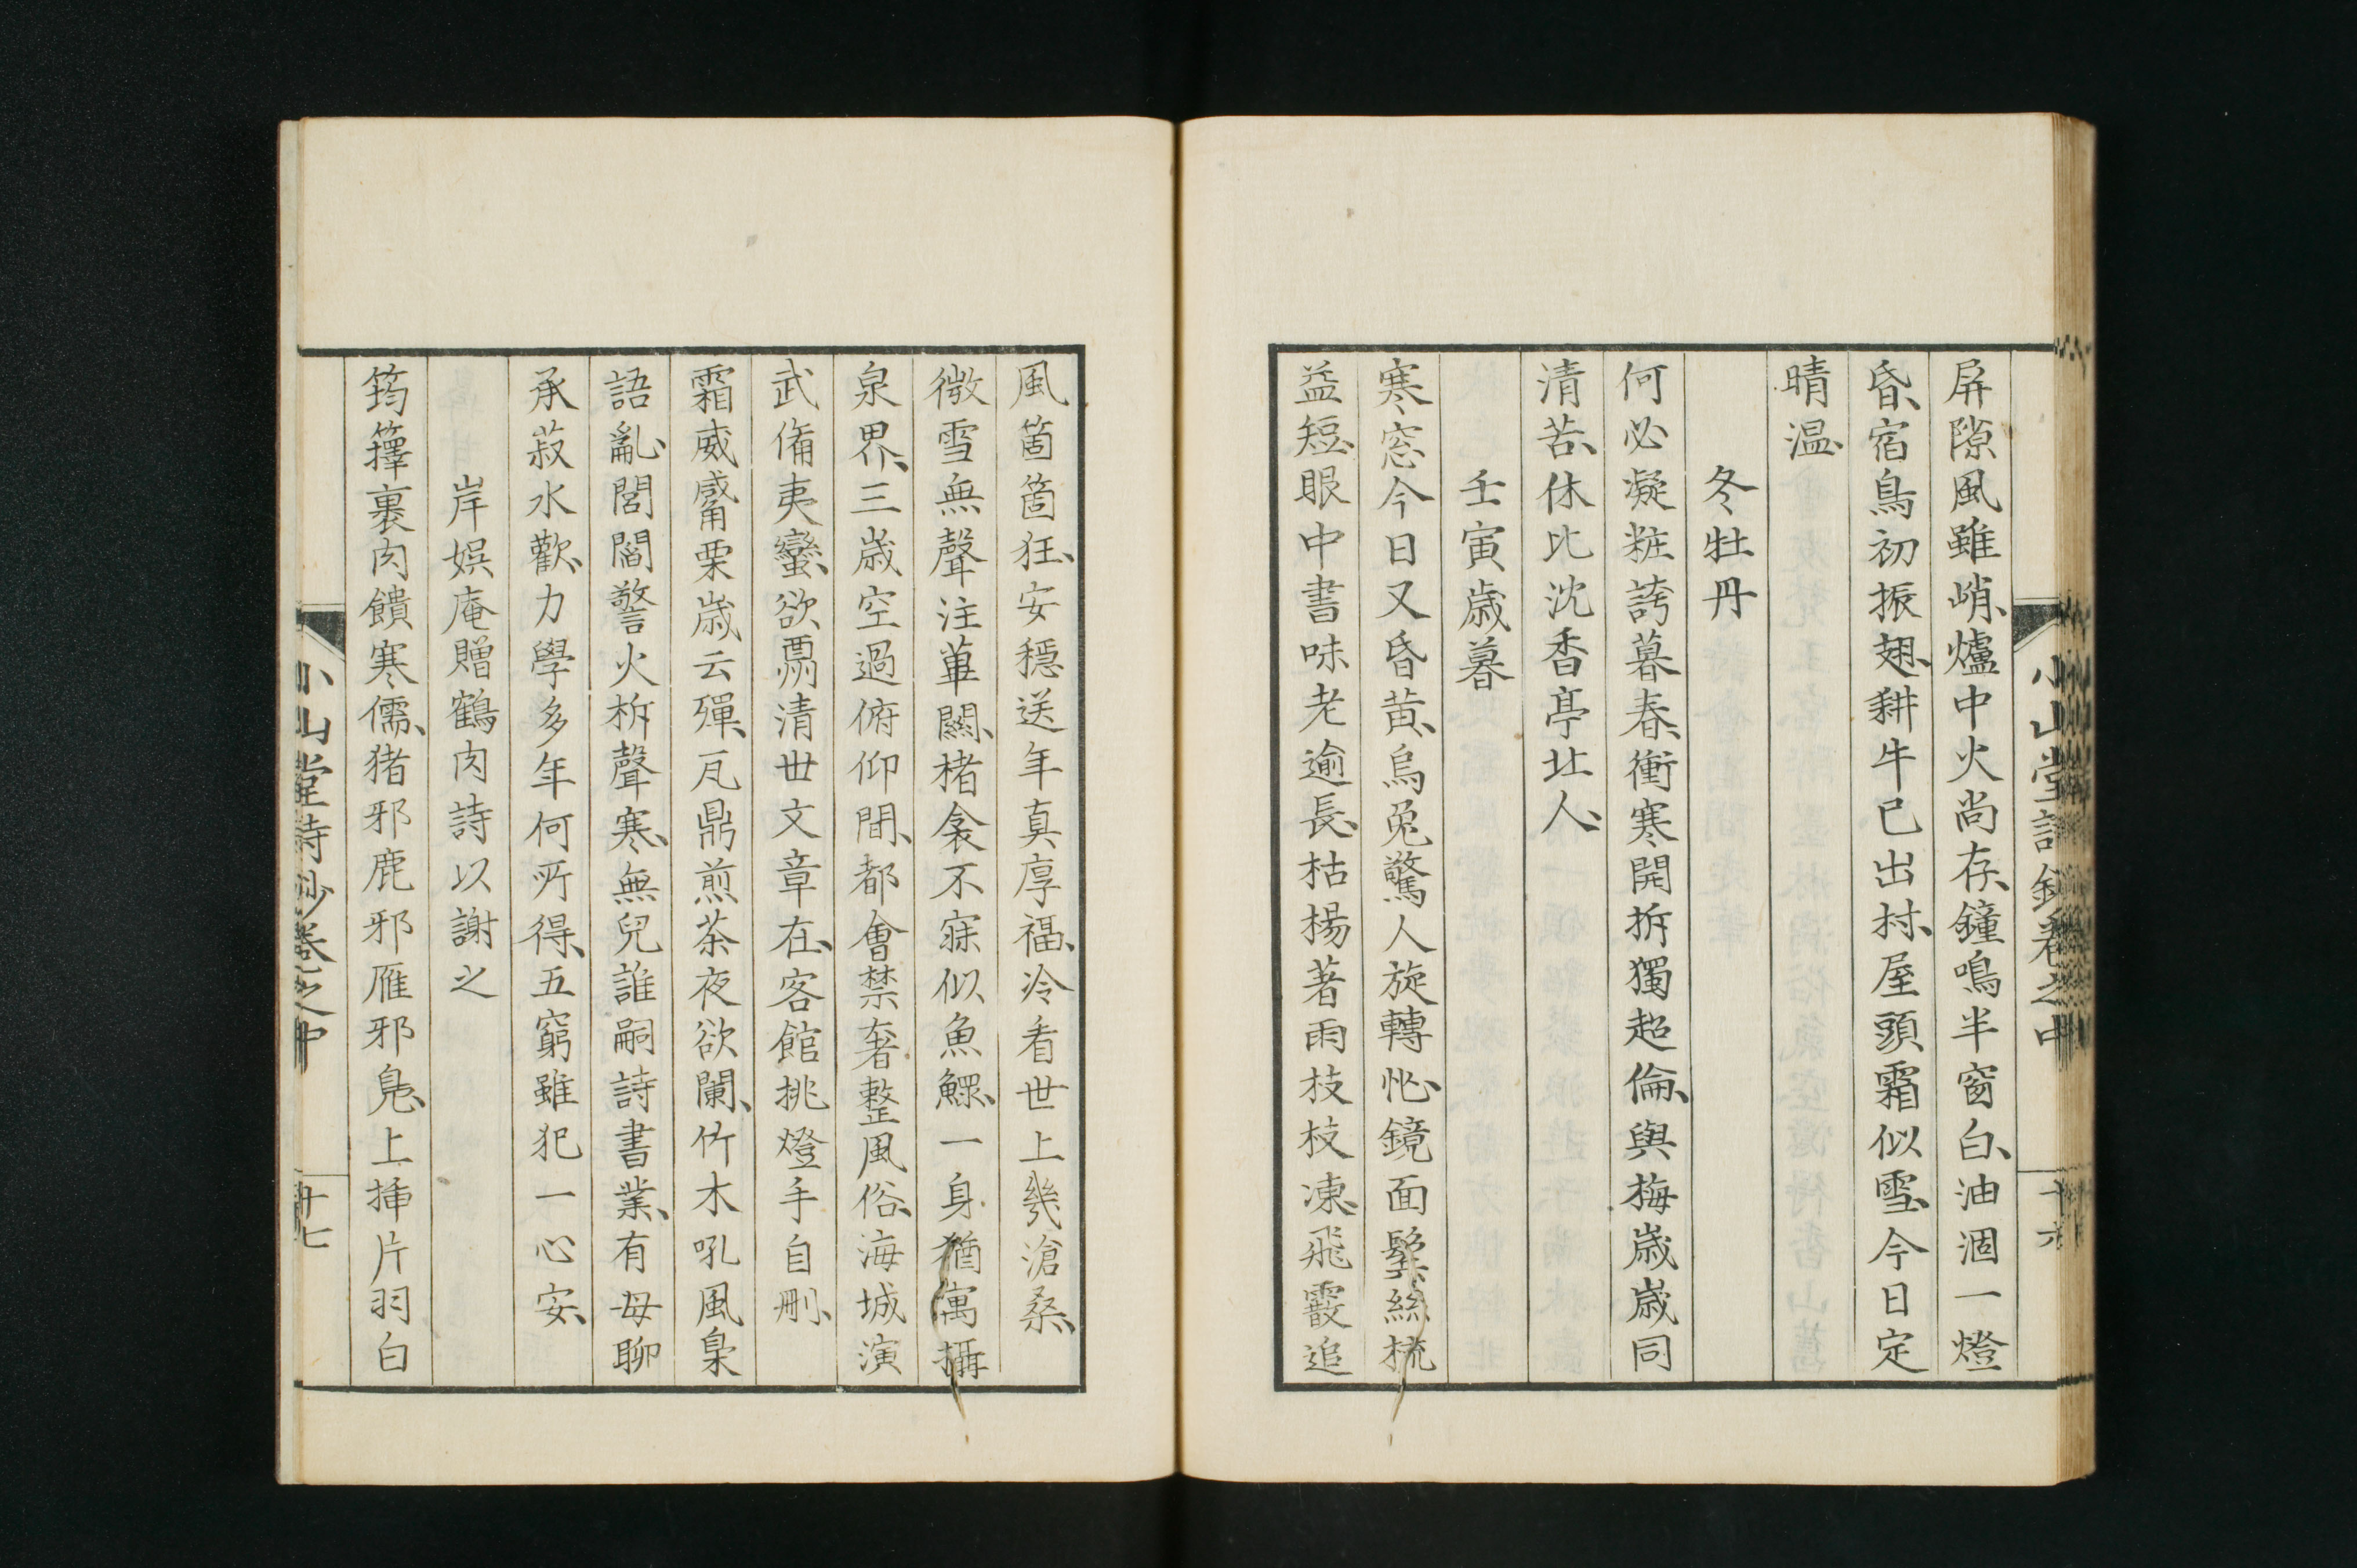 屏隙風雖峭、爐中火尚存、鐘鳴半窗白、油涸一燈
昏、宿鳥初振翅、耕牛已出村、屋頭霜似雪、今日定
晴温、
冬牡丹
何必凝粧誇暮春、衝寒開拆獨超倫、與梅歳歳同
清苦、休比沈香亭北人、
壬寅歳暮
寒窓今日又昏黄、烏兔驚人旋轉忙、鏡面鬓絲梳
益短、眼中書味老逾長、枯楊著雨枝枝凍、飛霰追
風箇箇狂、安穩送年真厚福、冷看世上幾滄桑、
微雪無聲注葦關、楮衾不寐似魚鰥、一身猶寓攝
泉界、三歳空過俯仰間、都會禁奢整風俗、海城演
武備夷蠻、欲票清世文章在、客館挑燈手自刪、
霜威觱栗歳云殫、瓦鼎煎茶夜欲闌、竹木吼風臬
語亂、閭閻警火柝聲寒、無兒誰嗣詩書業、有母聊
承菽水歡、力學多年何所得、五窮雖犯一心安、
岸娯庵贈鶴肉詩以謝之
筠籜裹肉饋寒儒、猪邪鹿邪雁邪鳧、上挿片羽白
小山堂詩鈔卷之中
十六
小山堂詩鈔卷之中
十七